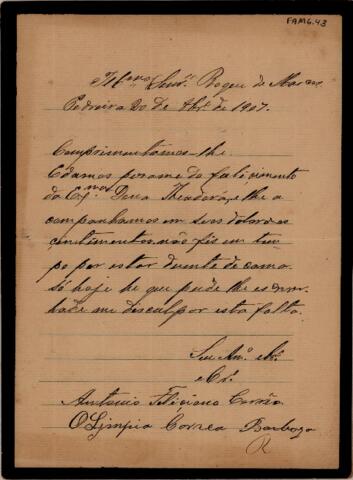 FAM6.43
Illmo Senr. Roque de Mo
Pedreira 20 de Abr. de 1907.
Comprimentamos-lhe
E damos pezame do falicimento
da Exma. Dona Theodora, e lhe a
companhamos em seus dolorosos
centimentos, não fis em tem-
po por estar duente de cama.
só hoje he que pude lhe escrever
hade me disculpar esta falta.
Seu Amo. Obr.
e Cr.
Antonio Feliciano Corrêa
Olimpia Correa Barboza
R